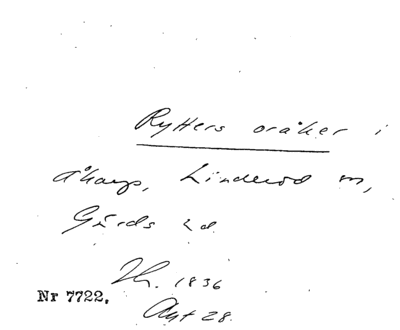 Rytters oråker i
Åkarp, Linderöd sn,
Gärds hd
Th. 1836
Nr 7722. Akt 28.